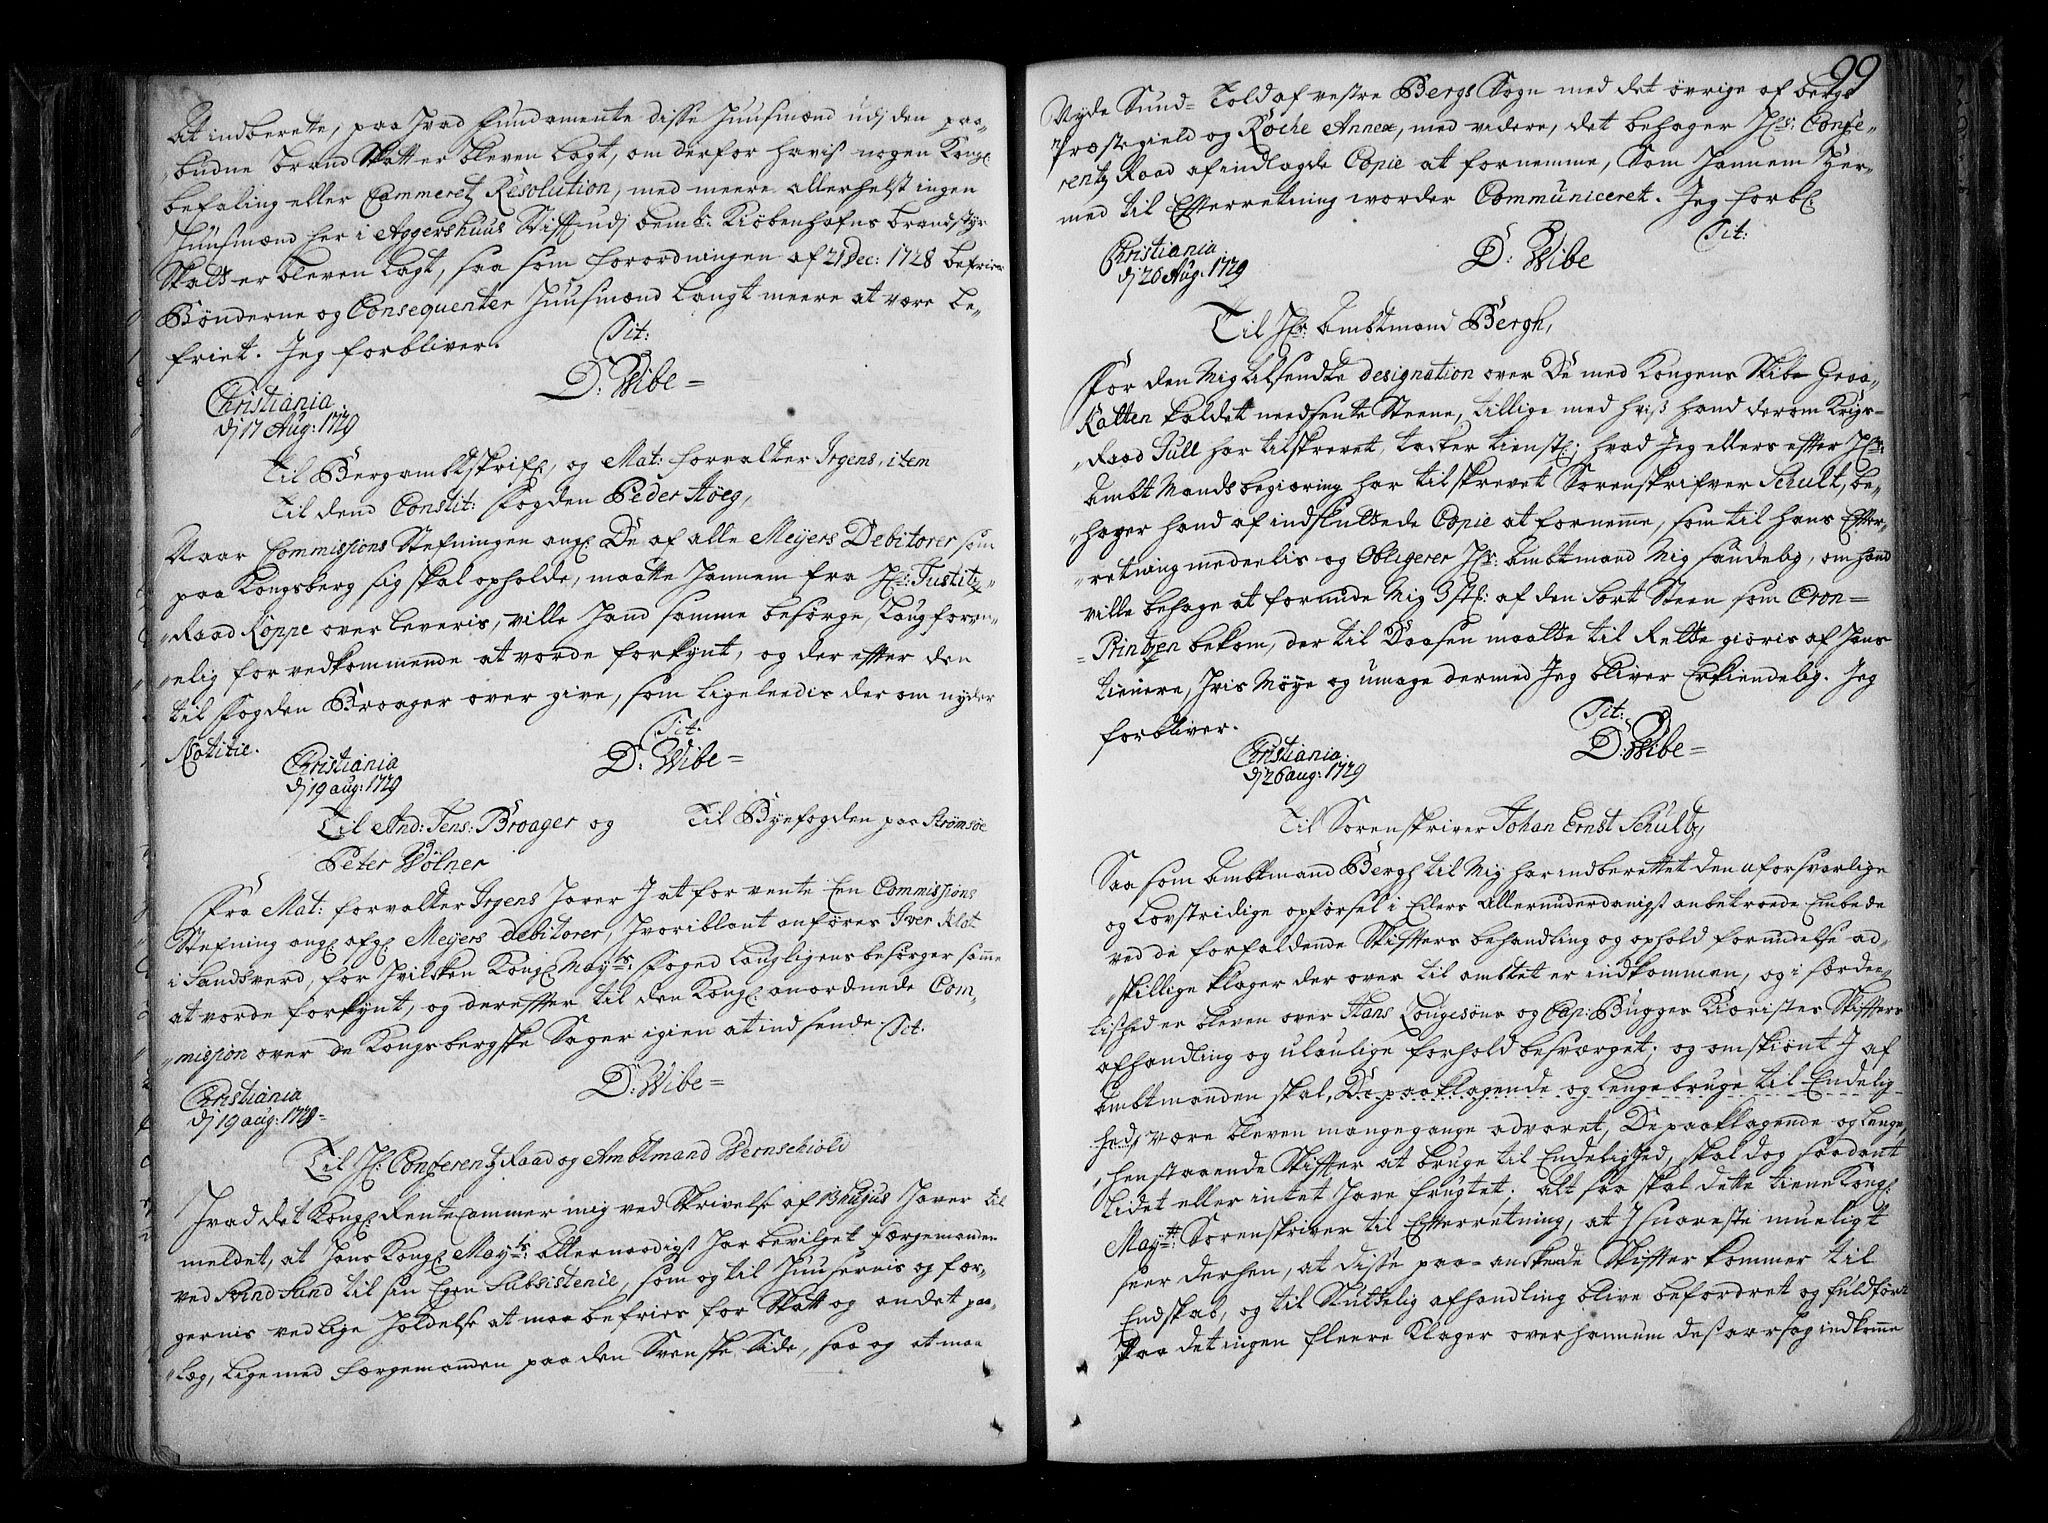 At indberette, paa hvad Fundamente disse Huusmænd udj den paa-
„budne brand Skatt er bleven Lagt, om derfor havis nogen Kongl:
befaling eller Cammeretz Resolution, med meere allerhelst ingen
Huusmænd her i Aggershuus Stift udj bem:te Kiøbenhafns brandstyr
Skatt er bleven Lagt, saa som forordningen af 21 Dec: 1728 befrier
Bønderne og Consequenter Huusmænd Langt meere at være be-
friet. Jeg forbliver.
Tit:
D: Wibe =
Christiania
dj 17 Aug: 1729
Til Bergambtskrif: og Mat: forvalter Irgens, item
til dend Constit: Fogden Peder Høeg,
Naar Commissions Stefningen ang: De af alle Meijers Debitorer som
paa Kongsberg sig skal opholde, maatte hannem fra Hr: Justitz-
„Raad Köppe over Leveris, ville hand samme besørge, Laugform-
„elig for vedkommende at vorde forkynt, og der efter den
til Fogden Broager over give, som Ligeleedis der om nyder
Notitie.
Tit:
D: Wibe =
Christiania
dj 19 aug: 1729
Til And: Jens: Broager og
Peter Wölner
Til Byefogden paa Strømsøe
Fra Mat: forvalter Irgens haver I at forvente En Commissions
Stefning ang: afg: Meijers debitorer, hvoriblant anføres Iver Klat
i Sandsverd, for hvilken Kongl: May:ts Foged Lougligens besørger samme
at vorde forkynt, og derefter til den Kongl: anordnede Com-
„mission over de Kongsbergske Sager igien at indsende. Tit:
D: Wibe =
Christiania
dj 19 aug: 1729 =
Til Hr: Conferentz Raad og Ambtmand Wernschiold
Hvad det Kongl: Rente Cammer mig ved Skrivelse af 13 hujus haver til
meldet, at Hans Kongl: May:ts allernaadigst har bevilget færgemanden
ved Svind Sund til sin Egen Subsistence, som og til Huusernis og fær-
gernis vedlige holdelse at maa befries for Skatt og andet paa-
„Læg, Lige med Færgemanden paa den Svenske Side, saa og at maa
99
Nyde Sund = Told af vestre Bergs Sogn med det øvrige af bergs
Præstegield og Røche Annex, med videre, det behager Hr: Confe-
rentz Raad af indlagde Copie at fornemme, som hannem her-
med til Efterretning worder Communiceret. Jeg forbl:
Tit:
D: Wibe
Christiania
dj 26 Aug: 1729
Til Hr: Ambtmand Bergh,
For den Mig tilsendte designation over De med Kongens Skib Graa-
Katten kaldet needsente Steene, tillige med hviß hand derom Krigs-
„Raad Jull har tilskrevet, tacker tienstl:; hvad Jeg ellers efter Hr:
Ambt Mands begiæring har tilskrevet Sorenskrifver Schult, be-
„hager hand af indsluttede Copie at fornemme, som til hans Efter-
„retning meddeelis og Obligerer Hr: Ambtmand Mig særdelig, om hand
ville behage at forunde Mig 3 st: af den Sort Steen som Cron =
= Printzen bekom, der til Daasen maatte til Rette giøris af hans
tienere, hvis Møye og umage dermed Jeg bliver Erkiendelig. Jeg
forbliver.
Tit:
D: Wibe =
Christiania
dj 26 aug: 1729
Til Sorenskriver Johan Ernst Schultz,
Saa som Ambtmand Bergh til Mig har indberettet den uforsvarlige
og Lovstridige opførsel i Eders Allerunderdanigst anbetroede Embede
ved de forfaldende Skifters behandling og ophold forundelse ad-
„skillige klager der over til ambtet er indkommen, og i særdee-
lished er bleven over Hans Lougesøns og Cap: Bugges Kiæristes Skifters
afhandling og ulaulige forhold besværget; og omskiønt I af
Ambtmanden skal, De paaklagende og Lenge bruge til Endelig
hed, være bleven mange gange advaret, De paaklagende og Lenge
henstaaende Skifter at bruge til Endelighed, skal dog saadant
Lidet eller intet have frugtet; alt saa skal dette tiene Kongl:
May:ts Sorenskriver til Efterretning, at I snareste mueligt
seer derhen, at disse paa = ankende Skifter kommer til
Endskab, og til Sluttelig afhandling blive befordret og fuldført
Paa det ingen fleere Klager over hannum deßaarsag indkomme